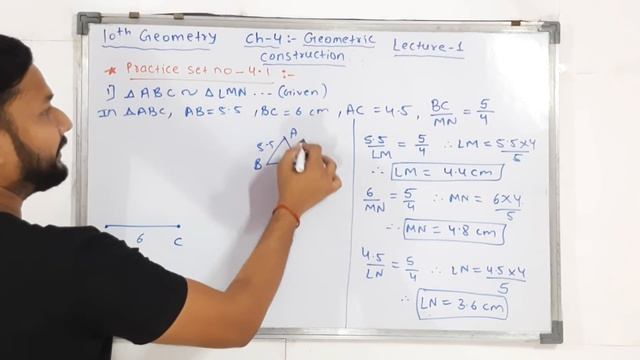 10th Geometry Ch-4:- Geometric Construction Lecture-1
* Practice set no-4.1:-
1) △ABC ~ △LMN ... (Given)
In △ABC, AB=5.5, BC=6 cm, AC=4.5, BC/MN = 5/4
A
5.5
B
6 C
5.5/LM = 5/4 ∴ LM = 5.5×4/5
∴ LM = 4.4 cm
6/MN = 5/4 ∴ MN = 6×4/5
∴ MN = 4.8 cm
4.5/LN = 5/4 ∴ LN = 4.5×4/5
∴ LN = 3.6 cm